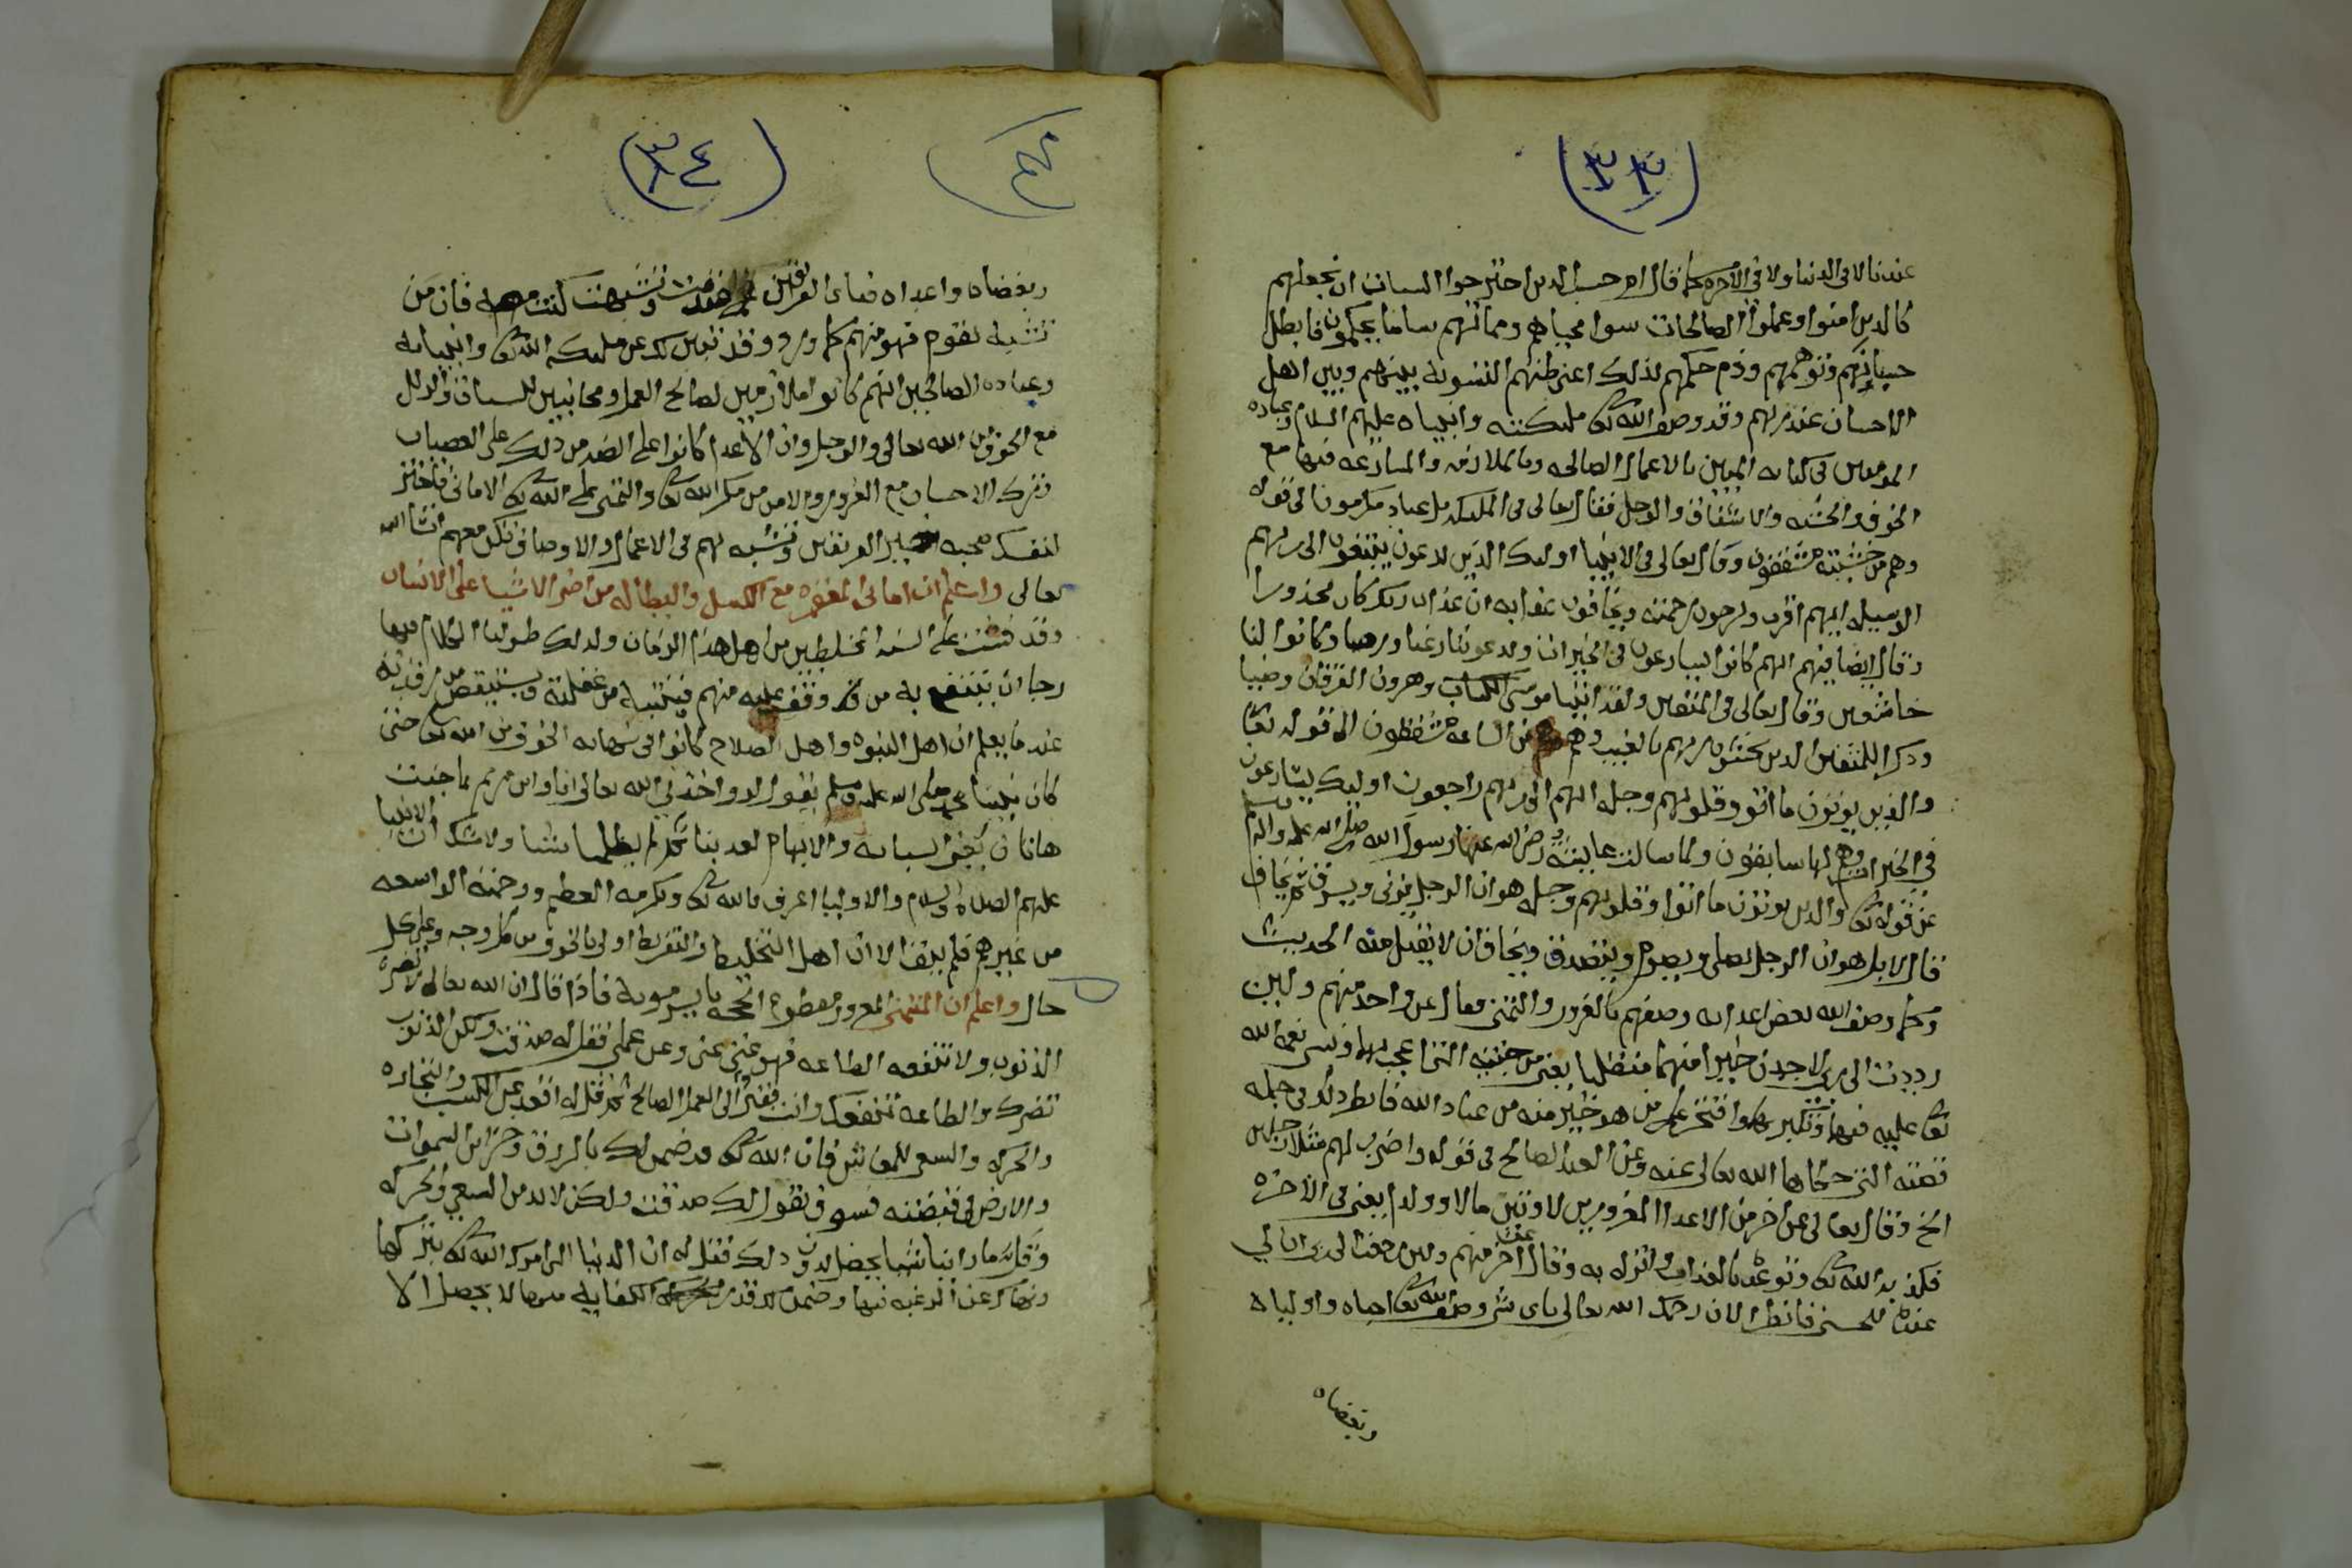 (٣٣)
عندنا لا فى الدنيا ولا فى الاخره كما قال ام حسب الذين اجترحوا السيات ان نجعلهم
كالذين امنوا وعملوا الصالحات سوا محياهم ومماتهم سا ما يحكمون فابطل
حسبانهم وتوهمهم وذم حكمهم لذلك اعنى ظنهم التسويه بينهم وبين اهل
الاحسان عند ربهم وقد وصف الله تعا مليكته وانبياه عليهم السلام وعباده
المومنين فى كتابه المبين بالاعمال الصالحه وبالملازمه والمسارعه فيها مع
الخوف والخشيه والاشفاق والوجل فقال تعالى فى المليكه بل عباد مكرمون الى قوله
وهم من خشيته مشفقون وقال تعالى فى الانبيا اوليك الذين يدعون يبتغون الى ربهم
الوسيله ايهم اقرب ويرجون رحمته ويخافون عذابه ان عذاب ربك كان محذورا
وقال ايضا فيهم انهم كانوا يسارعون فى الخيرات ويدعوننا رغبا ورهبا وكانوا لنا
خاشعين وقال تعالى فى المتقين ولقد اتينا موسى الكتاب وهرون الفرقان وضيا
وذكرا للمتقين الذين يخشون ربهم بالغيب وهم من الساعه مشفقون الى قوله تعا
والذين يوتون ما اتو وقلوبهم وجله انهم الى ربهم راجعون اوليك يسارعون
فى الخيرات وهم لها سابقون ولما سالت عايشه رضى الله عنها رسول الله صلى الله عليه واله وسلم
عن قوله تعا والذين يوتون ما اتوا وقلوبهم وجله هو ان الرجل يزنى ويسرق ثم يخاف
قال لا بل هو ان الرجل يصلى ويصوم ويتصدق ويخاف ان لا يقبل منه الحديث
وكما وصف الله بعض اعدايه وصفهم بالغرور والتمنى فقال عن واحد منهم ولين
رددت الى ربى لاجدن خيرا منهما منقلبا يعنى من جنته التى اعجب بها ونسى نعمه الله
تعا عليه فيها وتكبر بها وافتخر على من هو خير منه من عباد الله فانظر ذلك فى جمله
قصته التى حكاها الله تعالى عنه وعن العبد الصالح فى قوله واضرب لهم مثلا رجلين
الخ وقال تعالى عن اخر من الاعدا المغرورين لاوتين مالا وولدا يعنى فى الاخره
فكذبه الله تعا وتوعده بالعذاب وانزله به وقال عن اخر منهم ولين رجعت الى ربى ان لي
عنده للحسنى فانظر الان رحمك الله تعالى باى شى وصف الله تعا احباه واولياه
وبغضاه
(٣٤)
وبغضاه واعداه فباى الفريقين تشبهت كنت معه فان من
تشبه بقوم فهو منهم كما ورد وقد تبين لك عن مليكه الله تعا وانبيايه
وعباده الصالحين انهم كانوا ملازمين لصالح العمل ومجانبين للسيات والزلل
مع الخوف من الله تعالى والوجل وان الاعدا كانوا على الضد من ذلك على العصيان
وترك الاحسان مع الغرور والامن من مكر الله تعا والتمنى على الله تعا الامانى فاختر
لنفسك صحبه خير الفريقين وتشبه بهم فى الاعمال والاوصاف تكن معهم ان شا الله
تعالى واعلم ان امانى المغفره مع الكسل والبطاله من اضر الاشيا على الانسان
وقد فشت على السنه المخلطين من اهل هذا الزمان ولذلك طولنا الكلام فيها
رجا ان ينتفع به من وقف عليه منهم فينتبه من غفلته ويستيقض من رقدته
عند ما يعلم ان اهل النبوه واهل الصلاح كانوا فى نهايه الخوف من الله تعا حتى
كان نبينا محمد صلى الله عليه وسلم يقول لو واخذنى الله تعالى انا وابن مريم بما جنت
هاتان يعنى السبابه والابهام لعذبنا ثم لم يظلمنا شيا ولا شك ان الانبيا
عليهم الصلاه والسلام والاوليا اعرف بالله تعا وبكرمه العظيم ورحمته الواسعه
من غيرهم فلم يبق الا ان اهل التخليط والتفريط اولى بالخوف من كل وجه وعلى كل
حال واعلم ان المتمنى المغرور مقطوع الحجه بايسر مونه فاذا قال ان الله تعالى لا تضره
الذنوب ولا تنفعه الطاعه فهو غنى عنى وعن عملى فقل له صدقت ولكن الذنوب
تضرك والطاعه تنفعك وانت فقير الى العمل الصالح ثم قل له اقعد عن الكسب والتجاره
والحركه والسعى للمعاش فان الله تعا قد ضمن لك بالرزق وخزاين السموات
والارض فى قبضته فسوف يقول لك صدقت ولكن لا بد من السعي والحركه
وقل ما راينا شيا يحصل بدون ذلك فقل له ان الدنيا التى امرك الله تعا بتركها
ونهاك عن الرغبه فيها وضمن لك قدر الكفايه منها لا يحصل الا